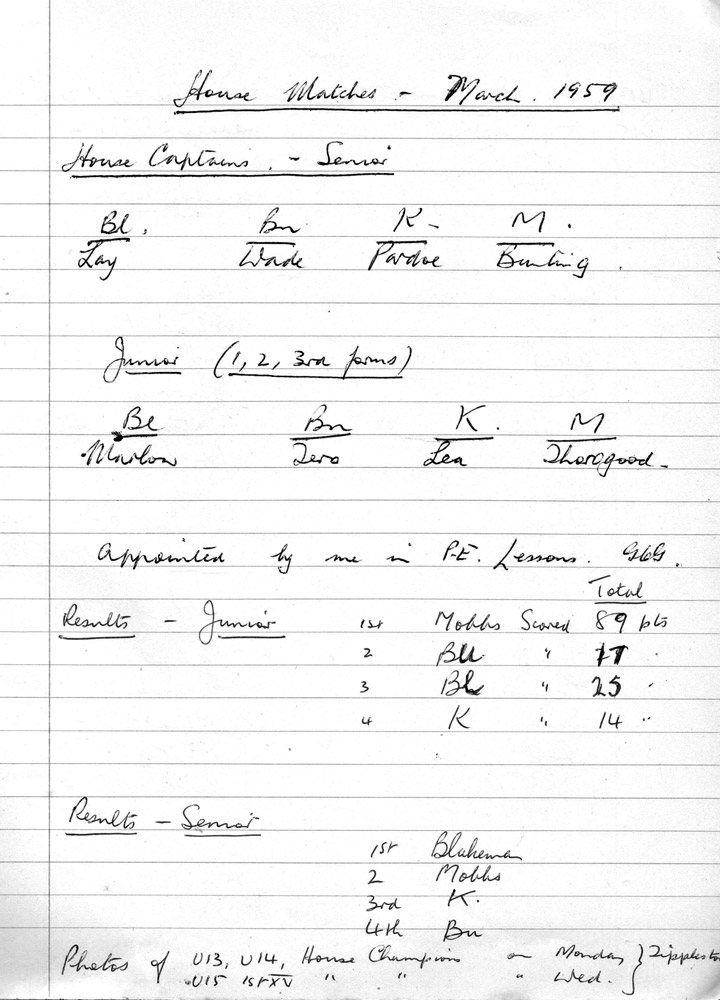 House Matches - March. 1959
House Captains. - Senior
Bl. Bn K- M.
Lay Wade Pardoe Bunting.
Junior (1, 2, 3rd forms)
Bl Bn K. M
Marlow Lea Thorogood.
Appointed by me in P.E. Lessons. GbG.
Total
Results - Junior 1st Mobbs Scored 89 pts
2 "
3 Bl " 25 "
4 K " 14 "
Results - Senior
1st Blakeman
2 Mobbs
3rd K.
4th Bn
Photos of U13, U14, House Champions on Monday }
U15 1st XV " " " Wed.